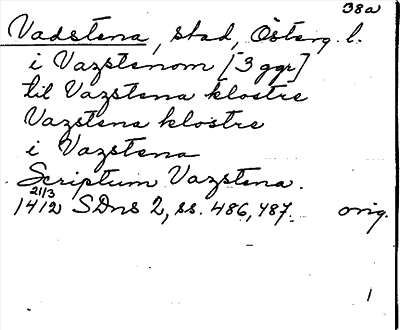 38a
Vadstena, stad, Österg. l.
i Vazstenom [3 ggr]
til Vazstena klostre
Vazstena klostre
i Vazstena
Scriptum Vazstena.
21/3
1412 SDns 2, ss. 486, 487. orig.
1